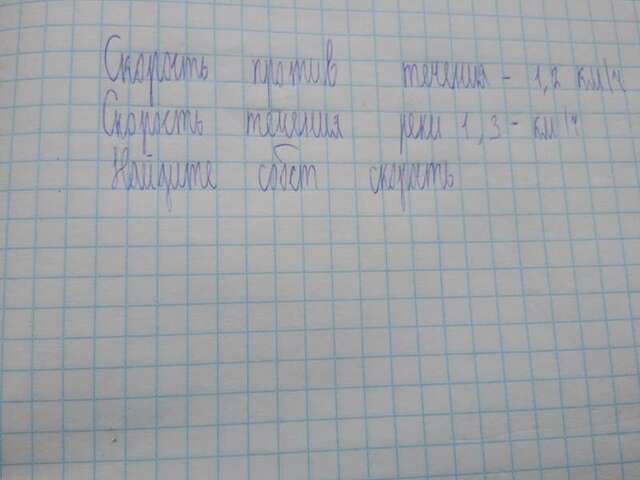 Скорость против течения - 1,2 км/ч
Скорость течения реки 1,3 - км/ч
Найдите собст скорость